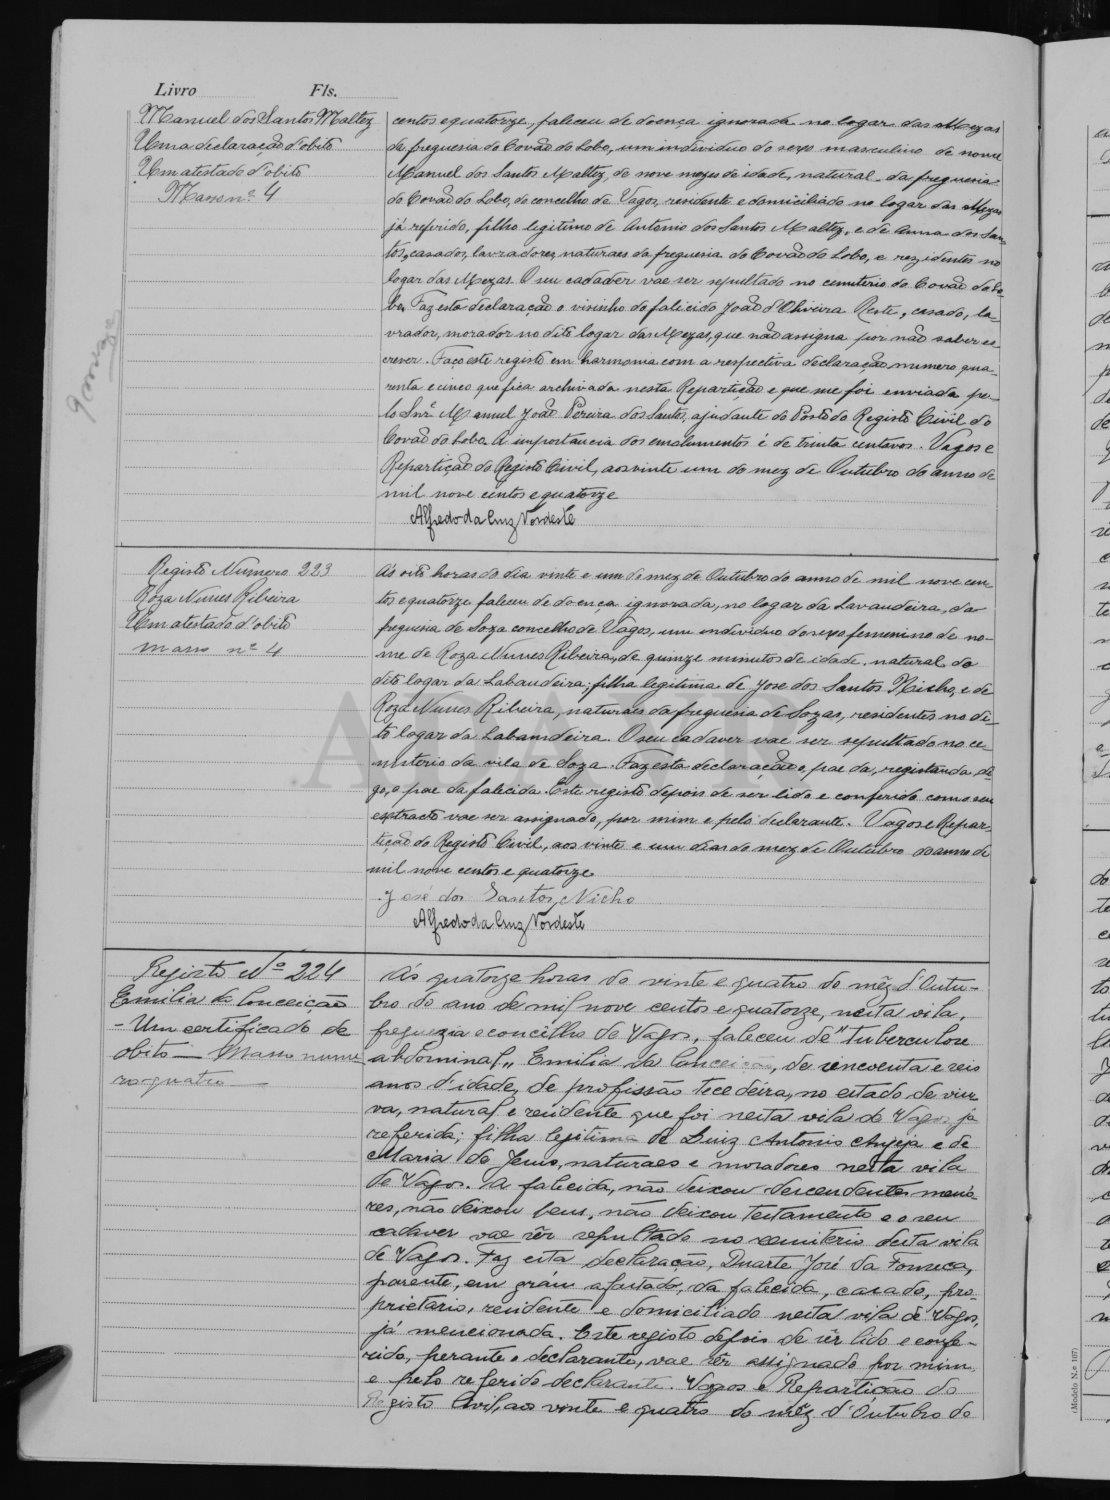 Livro Fls.
Manuel dos Santos Maltez
Uma declaração d'obito
Um atestado d'obito
Masso nº 4
9 mezes
centos e quatorze, faleceu de doença ignorada no logar das Mezas
da freguesia do Covão do Lobo, um individuo do sexo masculino de nome
Manuel dos Santos Maltez, de nove mezes de idade, natural da freguesia
do Covão do Lobo, do concelho de Vagos, residente e domiciliado no logar das Mezas
já referido, filho legitimo de Antonio dos Santos Maltez, e de Anna dos San-
tos, casados, lavradores, naturaes da freguesia do Covão do Lobo, e rezidentes no
logar das Mezas. O seu cadaver vae ser sepultado no cemiterio do Covão do Lo-
bo. Faz esta declaração o visinho do falicido João d'Oliveira Reste, casado, la-
vrador, morador no dito logar das Mezas, que não assigna por não saber es-
crever. Faço este registo em harmonia com a respectiva declaração numero qua-
renta e cinco que fica archivada nesta Repartição e que me foi enviada pe-
lo Snr. Manuel João Pereira dos Santos, ajudante do Posto do Registo Civil do
Covão do Lobo. A importancia dos emolumentos é de trinta centavos. Vagos e
Repartição do Registo Civil, aos vinte um do mez de Outubro do anno de
mil nove centos e quatorze
Alfredo da Cruz Nordeste
Registo Numero 223
Roza Nunes Ribeira
Um atestado d'obito
masso nº 4
Ás oito horas do dia vinte e um do mez de Outubro do anno de mil nove cen-
tos e quatorze faleceu de doença ignorada, no logar da Lavandeira, da
freguesia de Soza concelho de Vagos, um individuo do sexo femenino de no-
me de Roza Nunes Ribeira, de quinze minutos de idade, natural do
dito logar da Labandeira; filha legitima de Jose dos Santos Nicho, e de
Roza Nunes Ribeira, naturaes da freguesia de Sozas, residentes no di-
to logar da Labamdeira. O seu cadaver vae ser sepultado no ce-
miterio da vila de Soza. Faz esta declaração o pae da, registanda, di-
go, o pae da falecida. Este registo depois de ser lido e conferido com o seu
extracto vae ser assignado, por mim e pelo declarante. Vagos e Repar-
tição do Registo Civil, aos vinte e um dias do mez de Outubro do anno de
mil nove centos e quatorze
José dos Santos Nicho
Alfredo da Cruz Nordeste
Registo Nº 224
Emilia da Conceição
- Um certificado de
obito — Masso nume
ro quatro —
Ás quatorze horas do vinte e quatro do mêz d'Outu-
bro do ano de mil nove centos e quatorze, nesta vila,
freguezia e concelho de Vagos, faleceu de "tuberculose
abdominal" Emilia da Conceição, de cincoenta e seis
anos d'idade, de profissão tecedeira, no estado de viu-
va, natural e residente que foi nesta vila de Vagos já
referida; filha legitima de Luiz Antonio Anjeja e de
Maria de Jesus, naturaes e moradores nesta vila
de Vagos. A falecida, não deixou descendentes meno-
res, não deixou bens, não deixou testamento e o seu
cadaver vae sêr sepultado no cemiterio desta vila
de Vagos. Faz esta declaração, Duarte José da Fonseca,
parente, em gráu afastado, da falecida, casado, pro-
prietario, residente e domiciliado nesta vila de Vagos,
já mencionada. Este registo depois de sêr lido e confe-
rido, perante o declarante, vae sêr assignado por mim
e pelo referido declarante. Vagos e Repartição do
Registo Civil, aos vinte e quatro do mêz d'Outubro do
(Modelo N.º 107)